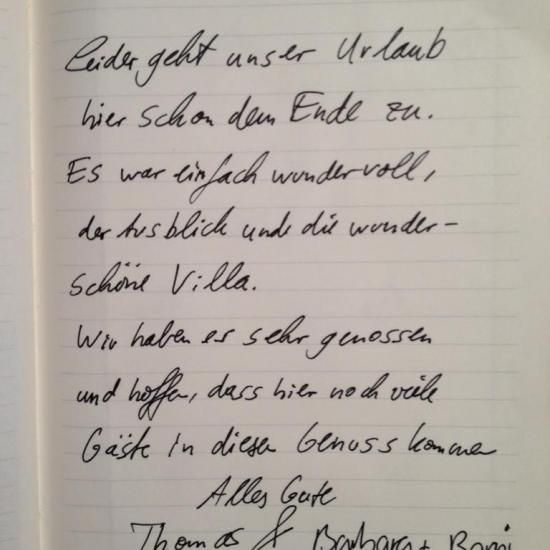 Leider geht unser Urlaub
hier schon dem Ende zu.
Es war einfach wundervoll,
der Ausblick und die wunder-
schöne Villa.
Wir haben es sehr genossen
und hoffen, dass hier noch viele
Gäste in diesen Genuss kommen
Alles Gute
Thomas & Barbara +